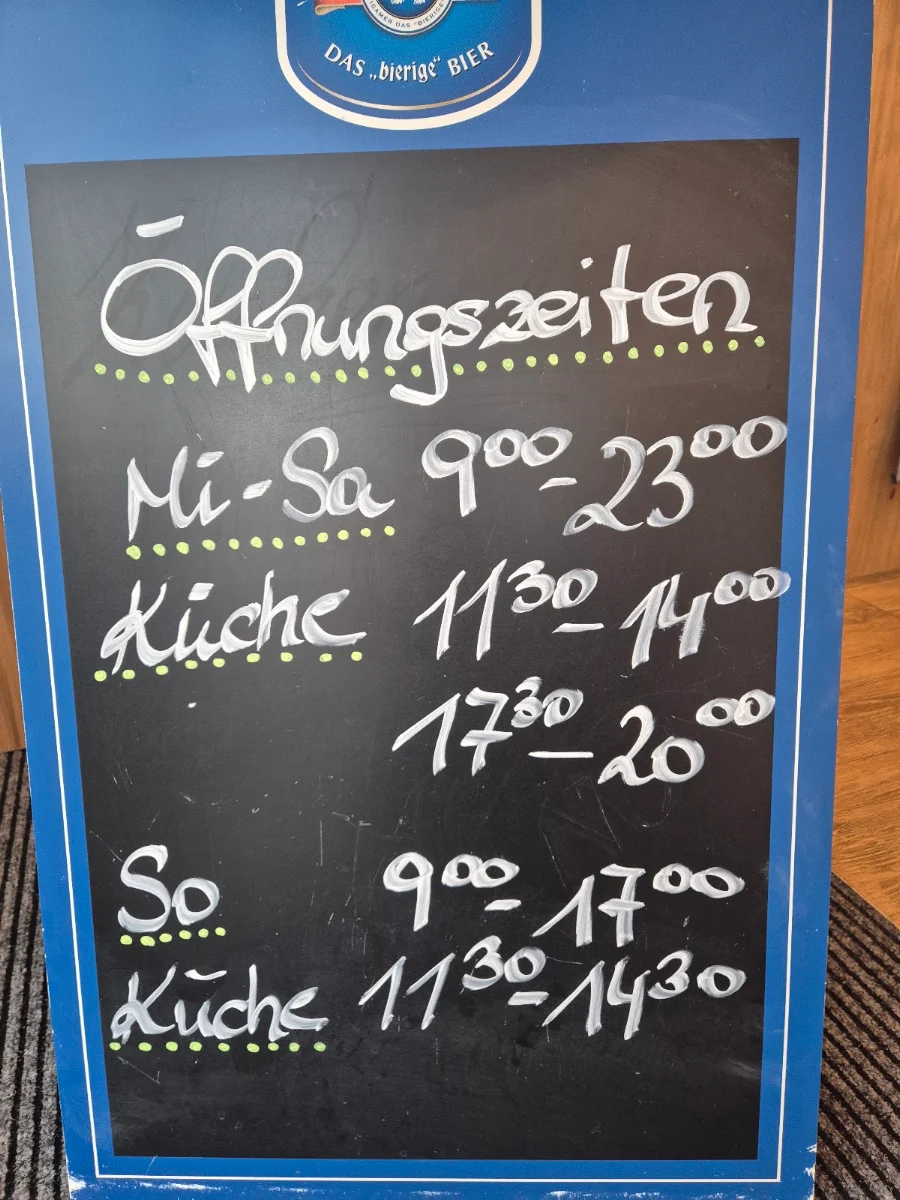 DAS „bierige“ BIER
Öffnungszeiten
Mi-Sa 9⁰⁰ - 23⁰⁰
Küche 11³⁰ - 14⁰⁰
17³⁰ - 20⁰⁰
So 9⁰⁰ - 17⁰⁰
Küche 11³⁰ - 14³⁰